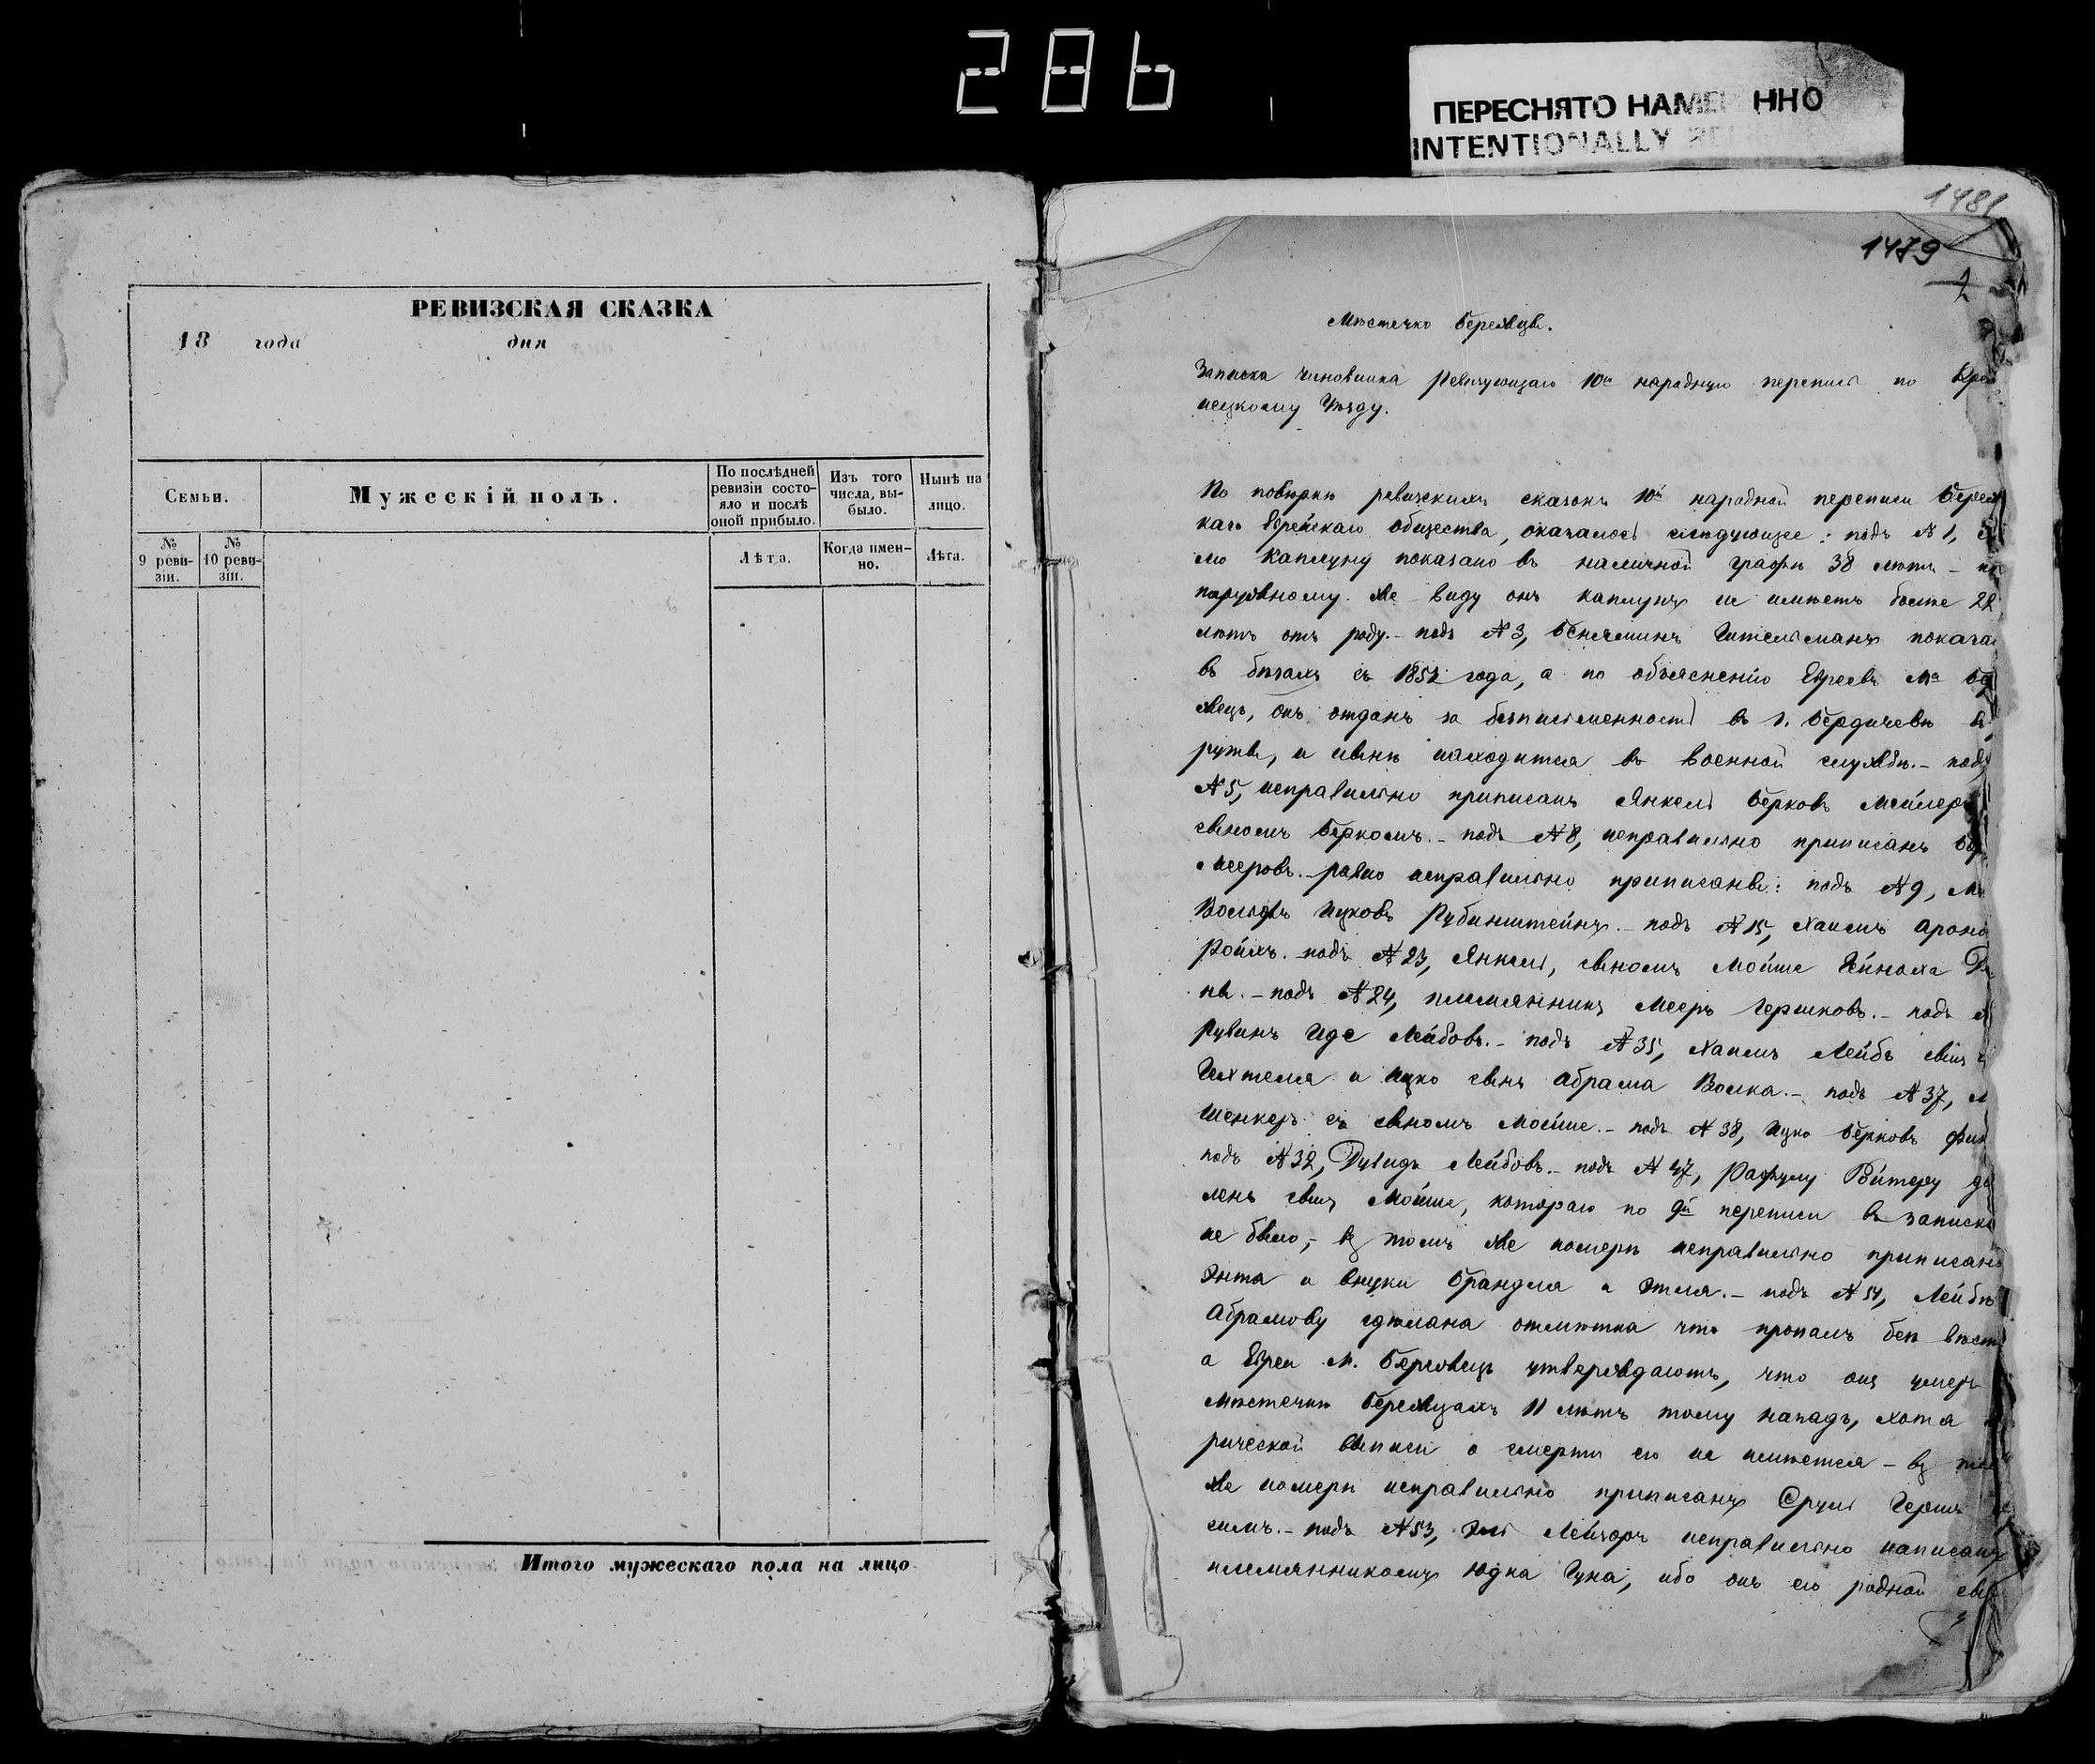 286
ПЕРЕСНЯТО НАМЕ ННО
INTENTIONALLY
РЕВИЗСКАЯ СКАЗКА
18 года дня
Семьи.
Мужескій полъ.
По послѣдней ревизіи состо-
яло и послѣ оной прибыло.
Изъ того числа, вы-
было.
Нынѣ на лицо.
№ 9 реви-
зіи.
№ 10 реви-
зіи.
Лѣта.
Когда имен-
но.
Лѣта.
Итого мужескаго пола на лицо
1481
1479
Мѣстечко Бережцы.
Записка чиновника ревизующаго 10ю народную перепись по Кре
нецкому Уѣзду.
По повѣркѣ ревизскихъ сказокъ 10й народной переписи Береж
каго Еврейскаго общества, оказалось слѣдующее: подъ №1,
лю Каплуну показано въ наличной графѣ 38 лѣтъ – по
наружному же виду онъ Каплунъ не имѣетъ болѣе 22
лѣтъ отъ роду. – подъ №3, Беньяминъ Гительманъ показа
въ бѣгахъ съ 1852 года, а по объясненію Евреевъ Мª Бе
жецъ, онъ отданъ за безписьменность въ г. Бердичевѣ въ
руты, и нынѣ находится въ военной службѣ. – подъ
№5, неправильно приписанъ Янкель Берковъ Мейлеръ
сыномъ Беркомъ. – подъ №8, неправильно приписанъ Бер
Мееровъ. – равно неправильно приписаны: подъ №9,
Вольфъ Ицковъ Рубинштейнъ. – подъ №15, Хаимъ Арон
Ройхъ. – подъ №23, Янкель, сыномъ Мойше Гейноха
пы. – подъ №24, племянникъ Мееръ Гершковъ. – подъ №
Рувинъ Иде Лейбовъ. – подъ №35, Хаимъ Лейбъ сынъ
Ихтеля и Ицко сынъ Абрама Волка. – подъ №37,
Шенкеръ съ сыномъ Мойше. – подъ №38, Ицко Берковъ Фи
подъ №32, Дувидъ Лейбовъ. – подъ №47, Рафулу Ройтеру
ленъ сынъ Мойше, котораго по 9й переписи въ записк
не было, – въ томъ же номерѣ неправильно приписан
Энта и внуки Брандля и Этля. – подъ №51, Лейбѣ
Абрамову сдѣлана отмѣтка что пропалъ безъ вѣст
а Евреи м. Бережецъ утверждаютъ, что онъ умеръ
мѣстечкѣ Бережцахъ 11 лѣтъ тому назадъ, хотя
рической выписи о смерти его не имѣется – въ том
же номерѣ неправильно приписанъ Сруль Гершъ
симъ. – подъ №53, Эль Лейзоръ неправильно написанъ
племянникомъ Юдка Гуна, ибо онъ его родной сын